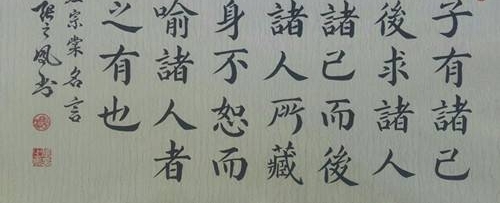 子有諸己
後求諸人
諸己而後
諸人所藏
身不恕而
喻諸人者
之有也
宗棠名言
之鳳书